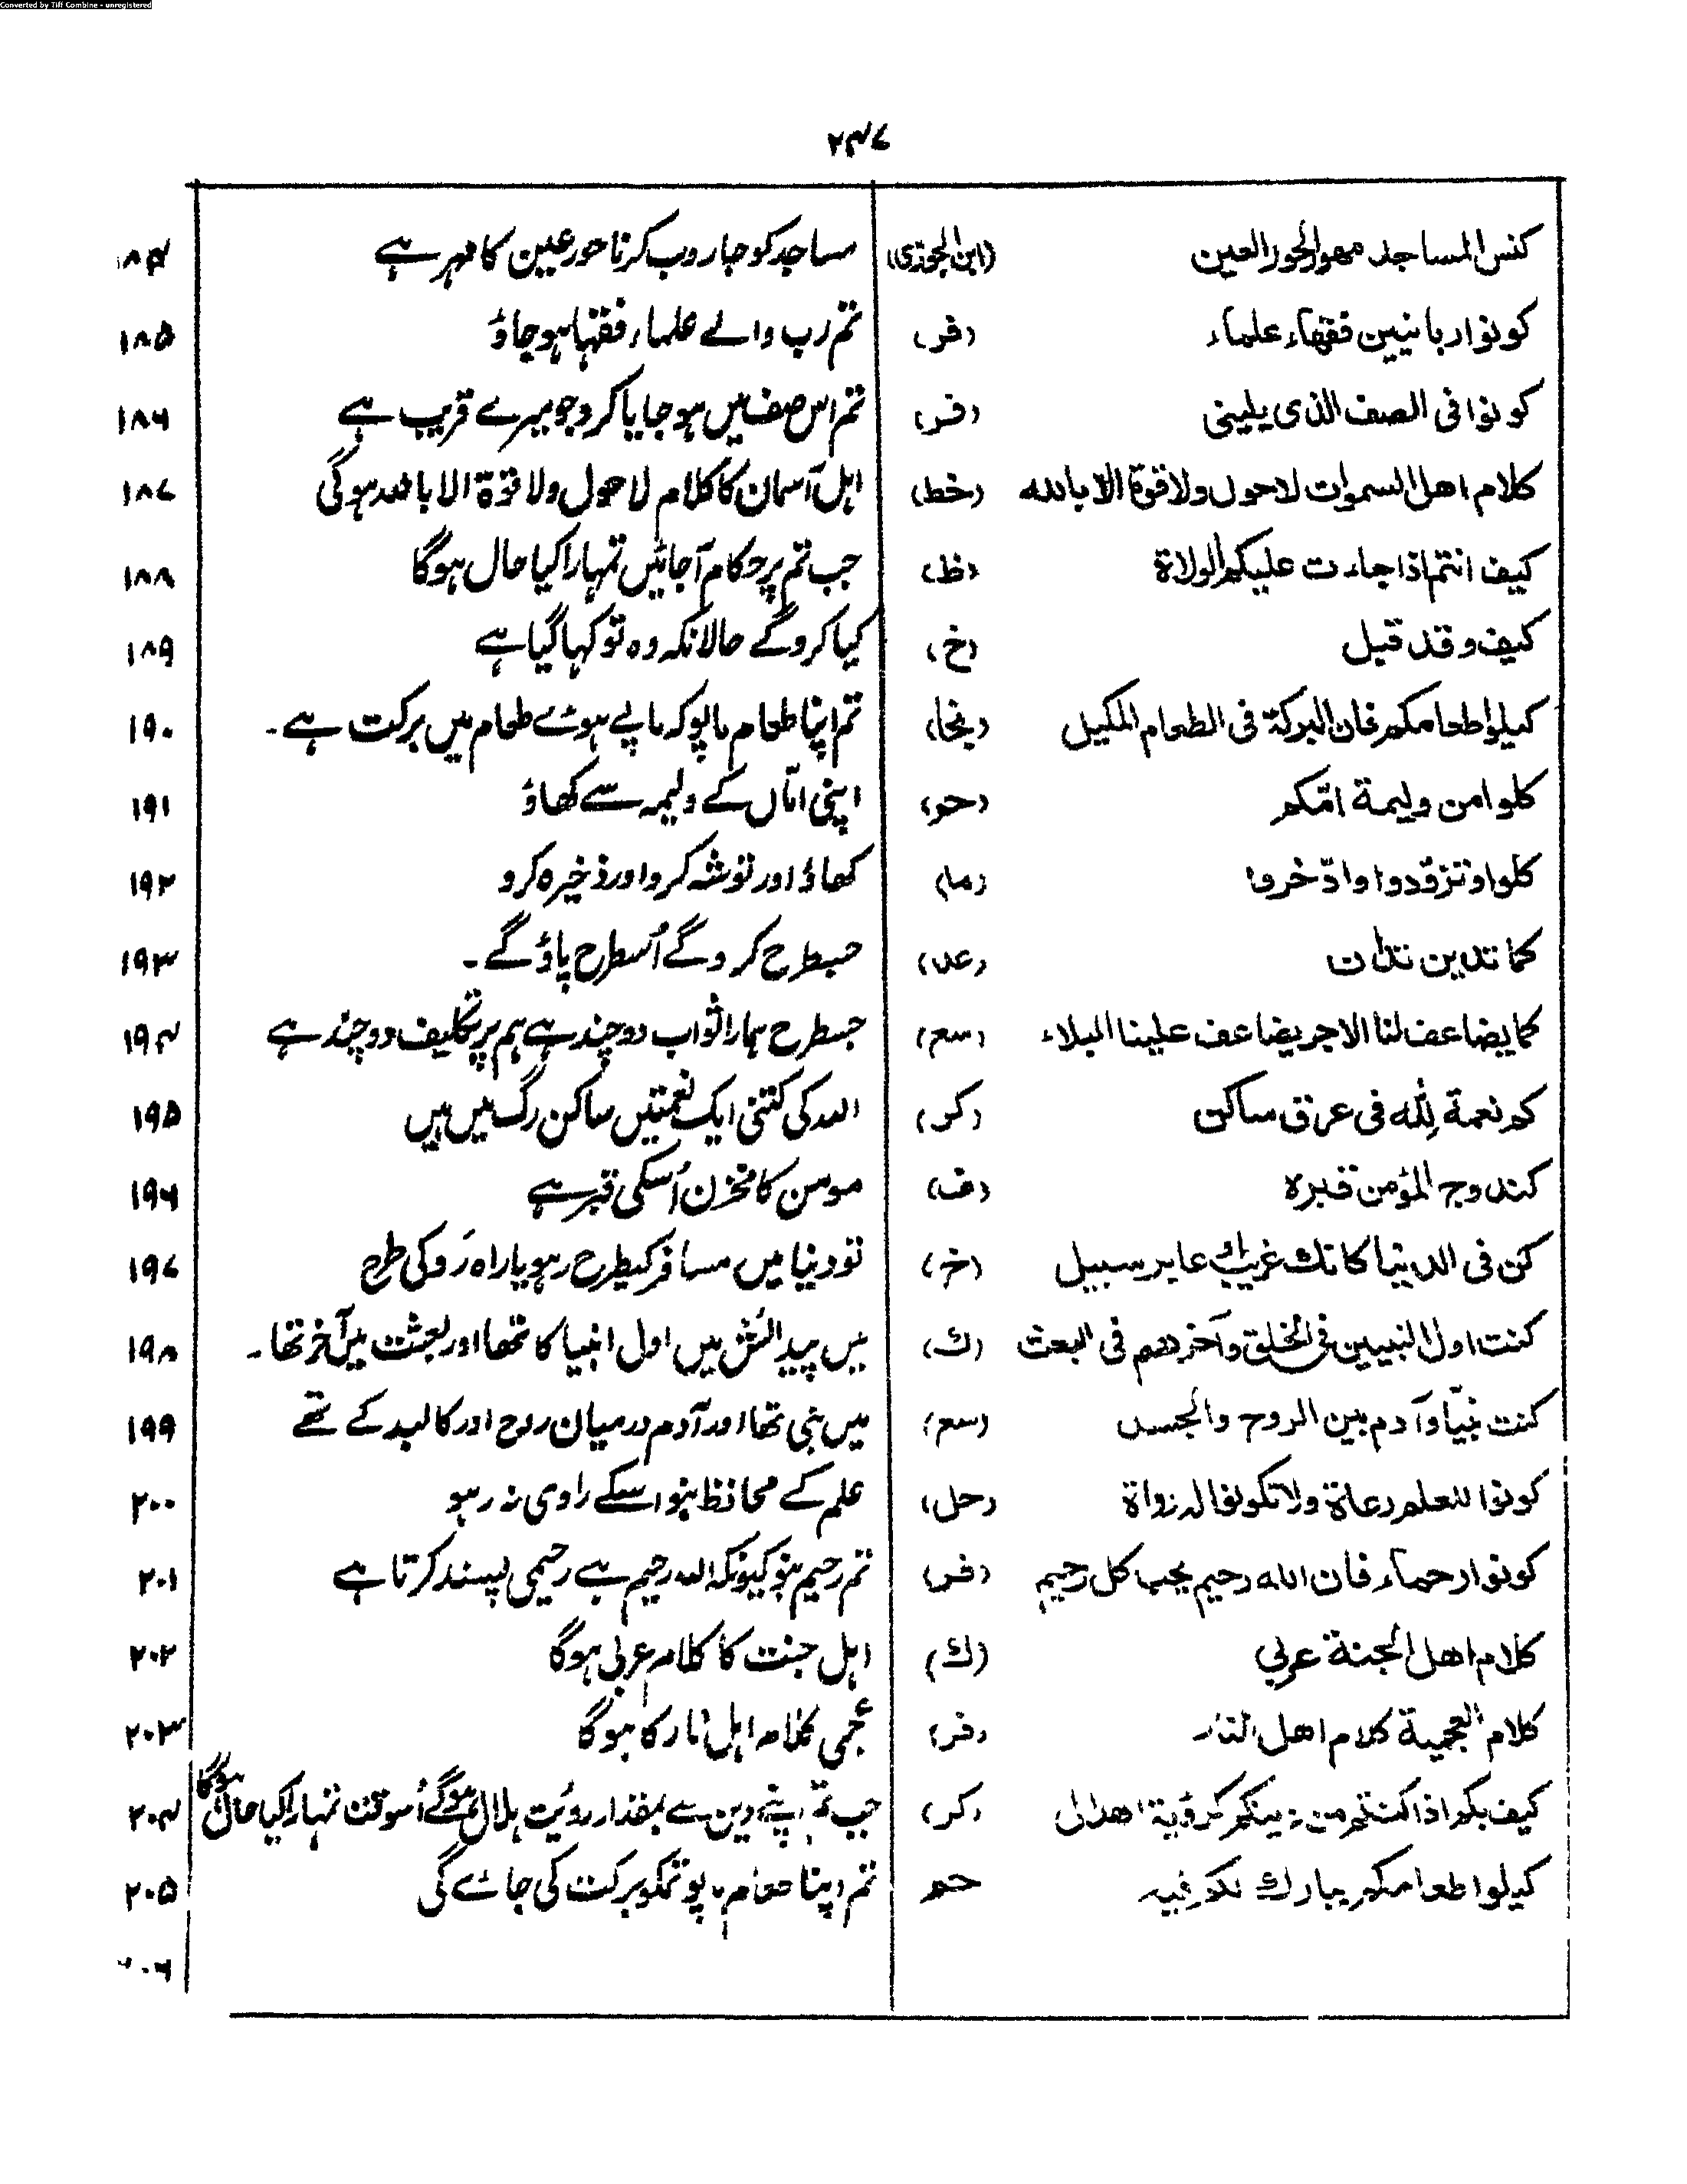 Converted by Tiff Combine - unregistered
۲۴۷
کنس المساجد مهور الحور العین (ابن الجوزی) مساجد کو جاروب کرنا حور عین کا مہر ہے ۱۸۴
کونوا ربانیین فقهاء علماء (فر) تم رب والے علماء فقہا ہو جاؤ ۱۸۵
کونوا فی الصف الذی یلینی (فر) تم اس صف میں ہو جایا کرو جو میرے قریب ہے ۱۸۶
کلام اهل السموات لاحول ولا قوة الا بالله (خط) اہل آسمان کا کلام لا حول ولا قوة الا باللہ ہوگی ۱۸۷
کیف انتم اذا جاءت علیکم الولاة (ظ) جب تم پر حکام آجائیں تمہارا کیا حال ہوگا ۱۸۸
کیف وقد قیل (خ) کیا کرو گے حالانکہ وہ تو کہا گیا ہے ۱۸۹
کیلوا طعامکم فان البرکة فی الطعام المکیل (نجا) تم اپنا طعام ماپو کہ ماپے ہوئے طعام میں برکت ہے۔ ۱۹۰
کلوا من ولیمة امّکم (حو) اپنی امّاں کے ولیمہ سے کھاؤ ۱۹۱
کلوا وتزوّدوا وادّخروا (ما) کھاؤ اور توشہ کرو اور ذخیرہ کرو ۱۹۲
کما تدین تدان (عد) جسطرح کروگے اُسطرح پاؤگے۔ ۱۹۳
کما یضاعف لنا الاجر یضاعف علینا البلاء (سع) جسطرح ہمارا ثواب دوچند ہے ہم پر تکلیف دوچند ہے ۱۹۴
کم نعمة لله فی عرق ساکن (کر) اللہ کی کتنی ایک نعمتیں ساکن رگ میں ہیں ۱۹۵
کندوج المؤمن قبره (ف) مومن کا مخزن اُسکی قبر ہے ۱۹۶
کن فی الدنیا کانك غریب او عابر سبیل (خ) تو دنیا میں مسافر کیطرح رہو یا راہ رَو کی طرح ۱۹۷
کنت اول النبیین فی الخلق وآخرهم فی البعث (ك) میں پیدائش میں اول انبیا کا تھا اور بعثت میں آخر تھا۔ ۱۹۸
کنت نبیّا وآدم بین الروح والجسد (سع) میں نبی تھا اور آدم درمیان روح اور کالبد کے تھے ۱۹۹
کونوا للعلم رعاة ولا تکونوا له رواة (حل) علم کے محافظ بنو اسکے راوی نہ رہو ۲۰۰
کونوا رحماء فان الله رحیم یحب کل رحیم (فر) تم رحیم بنو کیونکہ اللہ رحیم ہے رحیمی پسند کرتا ہے ۲۰۱
کلام اهل الجنة عربی (ك) اہل جنت کا کلام عربی ہوگا ۲۰۲
کلام العجمیة کلام اهل النار (فر) عجمی کلام اہل نار کا ہوگا ۲۰۳
کیف بکم اذا کنتم من دینکم کرؤیة الهلال (کر) جب تم اپنے دین سے بمقدار روئیت ہلال ہوگے اُسوقت تمہارا کیا حال ہوگا ۲۰۴
کیلوا طعامکم یبارك لکم فیه حم تم اپنا طعام ماپو تمکو برکت کی جائے گی ۲۰۵
۲۰۶